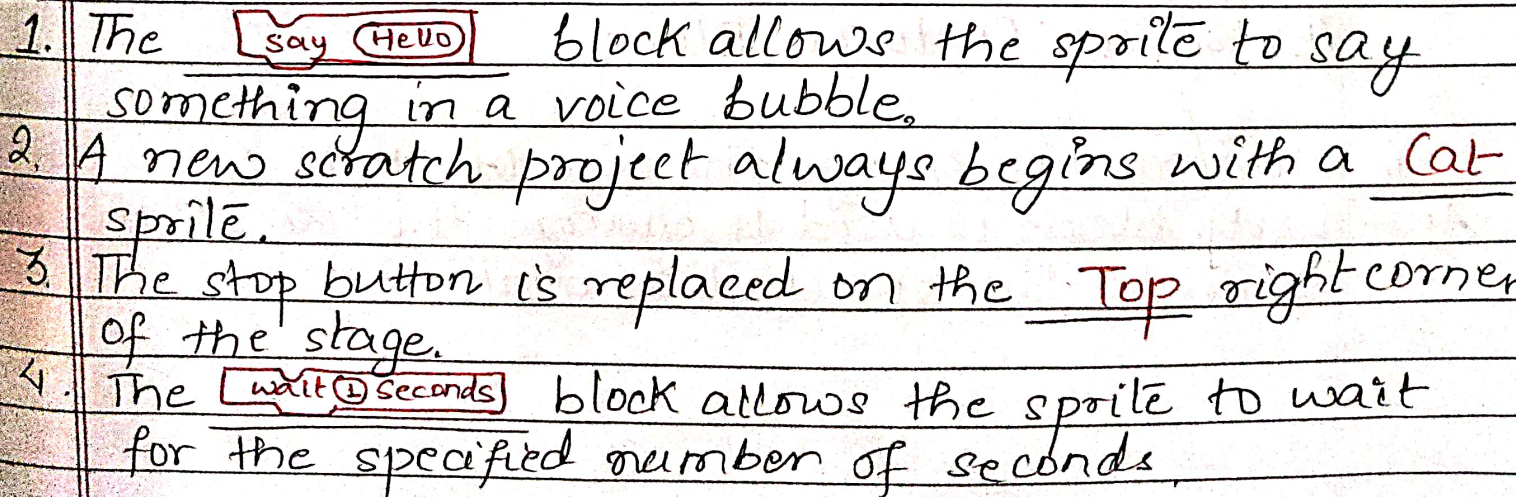 1. The say Hello block allows the sprite to say
something in a voice bubble.
2. A new scratch project always begins with a Cat
sprite.
3. The stop button is replaced on the Top right corner
of the stage.
4. The wait 1 seconds block allows the sprite to wait
for the specified number of seconds